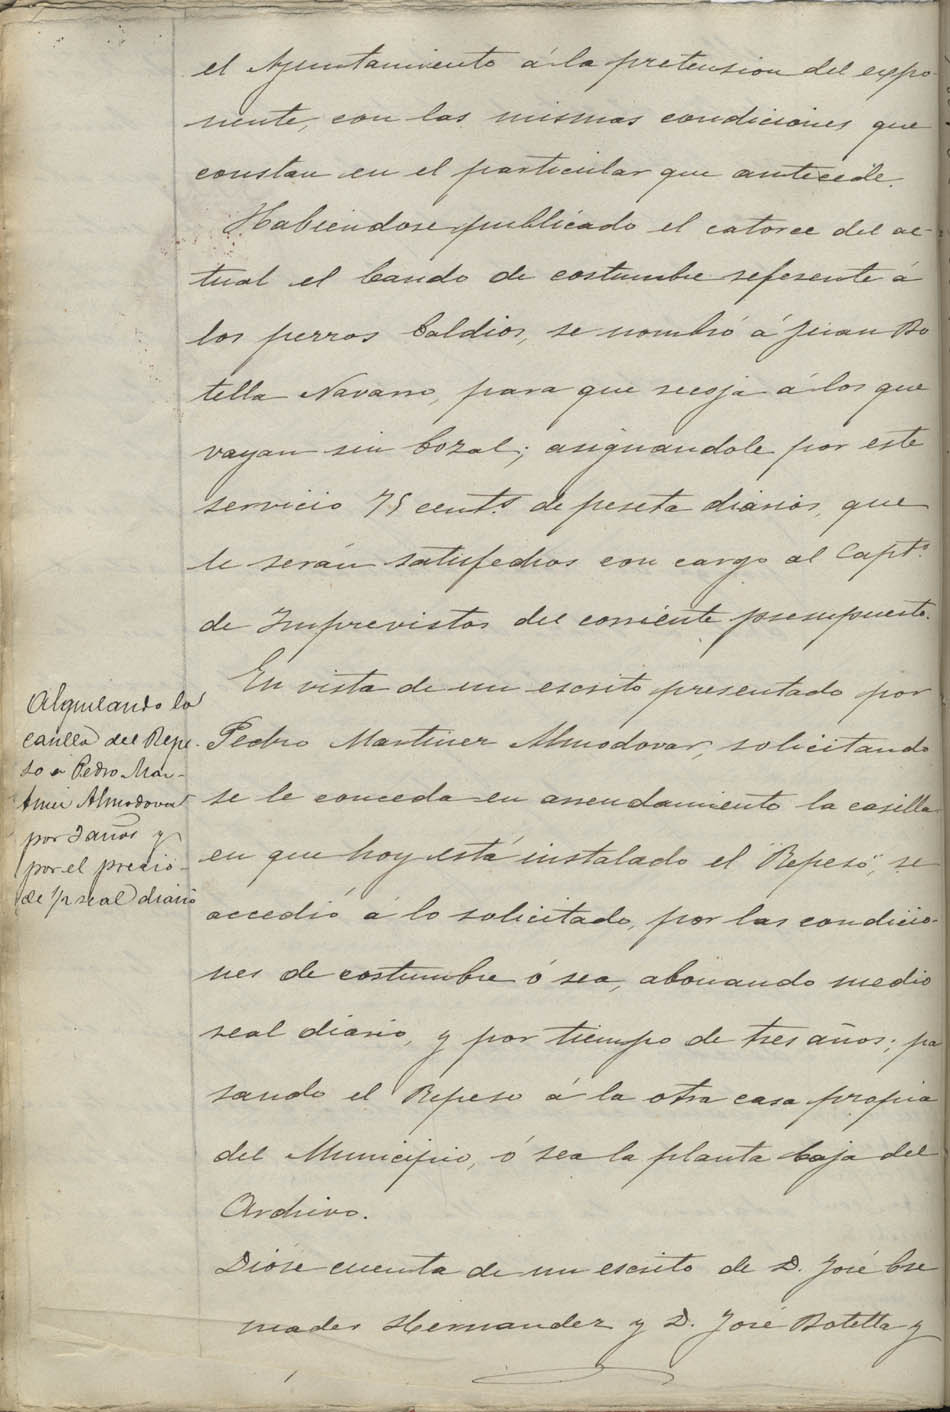 el Ayuntamiento á la pretension del expo-
nente, con las mismas condiciones que
constan en el particular que antecede.
Habiendose publicado el catorce del ac-
tual el bando de costumbre referente á
los perros baldios, se nombró á Juan Bo
tella Navarro, para que recoja á los que
vayan sin bozal; asignandole por este
servicio 75 cents. de peseta diarios, que
le serán satisfechos con cargo al Capto.
de Imprevistos del corriente presupuesto.
En vista de un escrito presentado por
Pedro Martinez Almodovar, solicitando
se le conceda en arrendamiento la casilla
en que hoy está instalado el "Repeso", se
accedió á lo solicitado, por las condicio-
nes de costumbre ó sea, abonando medio
real diario, y por tiempo de tres años; pa
sando el Repeso á la otra casa propia
del Municipio, ó sea la planta baja del
Archivo.
Dióse cuenta de un escrito de D. José Cre
mades Hernandez y D. José Botella y
Alquilando la
casilla del Repe-
so a Pedro Mar-
tinez Almodovar
por 3 años y
por el precio
de 1/2 real diario